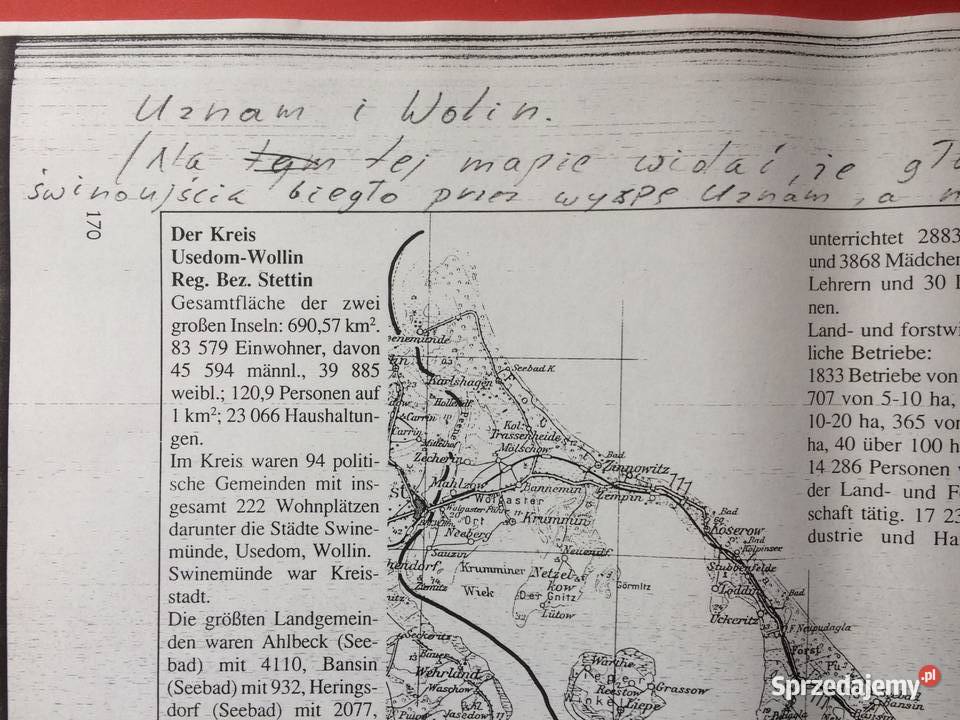 Uznam i Wolin.
(Na tej mapie widać, że
świnoujścia biegło przez wyspę Uznam, a
170
Der Kreis
Usedom-Wollin
Reg. Bez. Stettin
Gesamtfläche der zwei
großen Inseln: 690,57 km².
83 579 Einwohner, davon
45 594 männl., 39 885
weibl.; 120,9 Personen auf
1 km²; 23 066 Haushaltun-
gen.
Im Kreis waren 94 politi-
sche Gemeinden mit ins-
gesamt 222 Wohnplätzen
darunter die Städte Swine-
münde, Usedom, Wollin.
Swinemünde war Kreis-
stadt.
Die größten Landgemein-
den waren Ahlbeck (See-
bad) mit 4110, Bansin
(Seebad) mit 932, Herings-
dorf (Seebad) mit 2077,
enemünde
Seebad K.
Karlshagen
Hollend.
Carrin
Carrin
Peene
Mittelhof
Kol.
Trassenheide
Zecherin
Mölschow
Bad
Zinnowitz
Mahlzow
Bannemin
Zempin
Wolgaster
Wolgaster Fähre
Ort
Krummin
Neeberg
Bad
Koserow
Bad
Kölpinsee
Sauzin
Neuendf
Stubbenfelde
hendorf
Krumminer
Netzel-
kow
Görmitz
Loddin
Bad
Ziemitz
Wiek
Der Gnitz
Lütow
Ückeritz
F. Neupudagla
Seckeritz
Forst
Bauer
Wehrland
Warthe
Waschow
Reestow
Grassow
Liepe
Jasedow
Bad
Bansin
unterrichtet 2883
und 3868 Mädchen
Lehrern und 30
nen.
Land- und forstwi
liche Betriebe:
1833 Betriebe von
707 von 5-10 ha,
10-20 ha, 365 vo
ha, 40 über 100 h
14 286 Personen
der Land- und F
schaft tätig. 17 23
dustrie und Ha
Sprzedajemy.pl